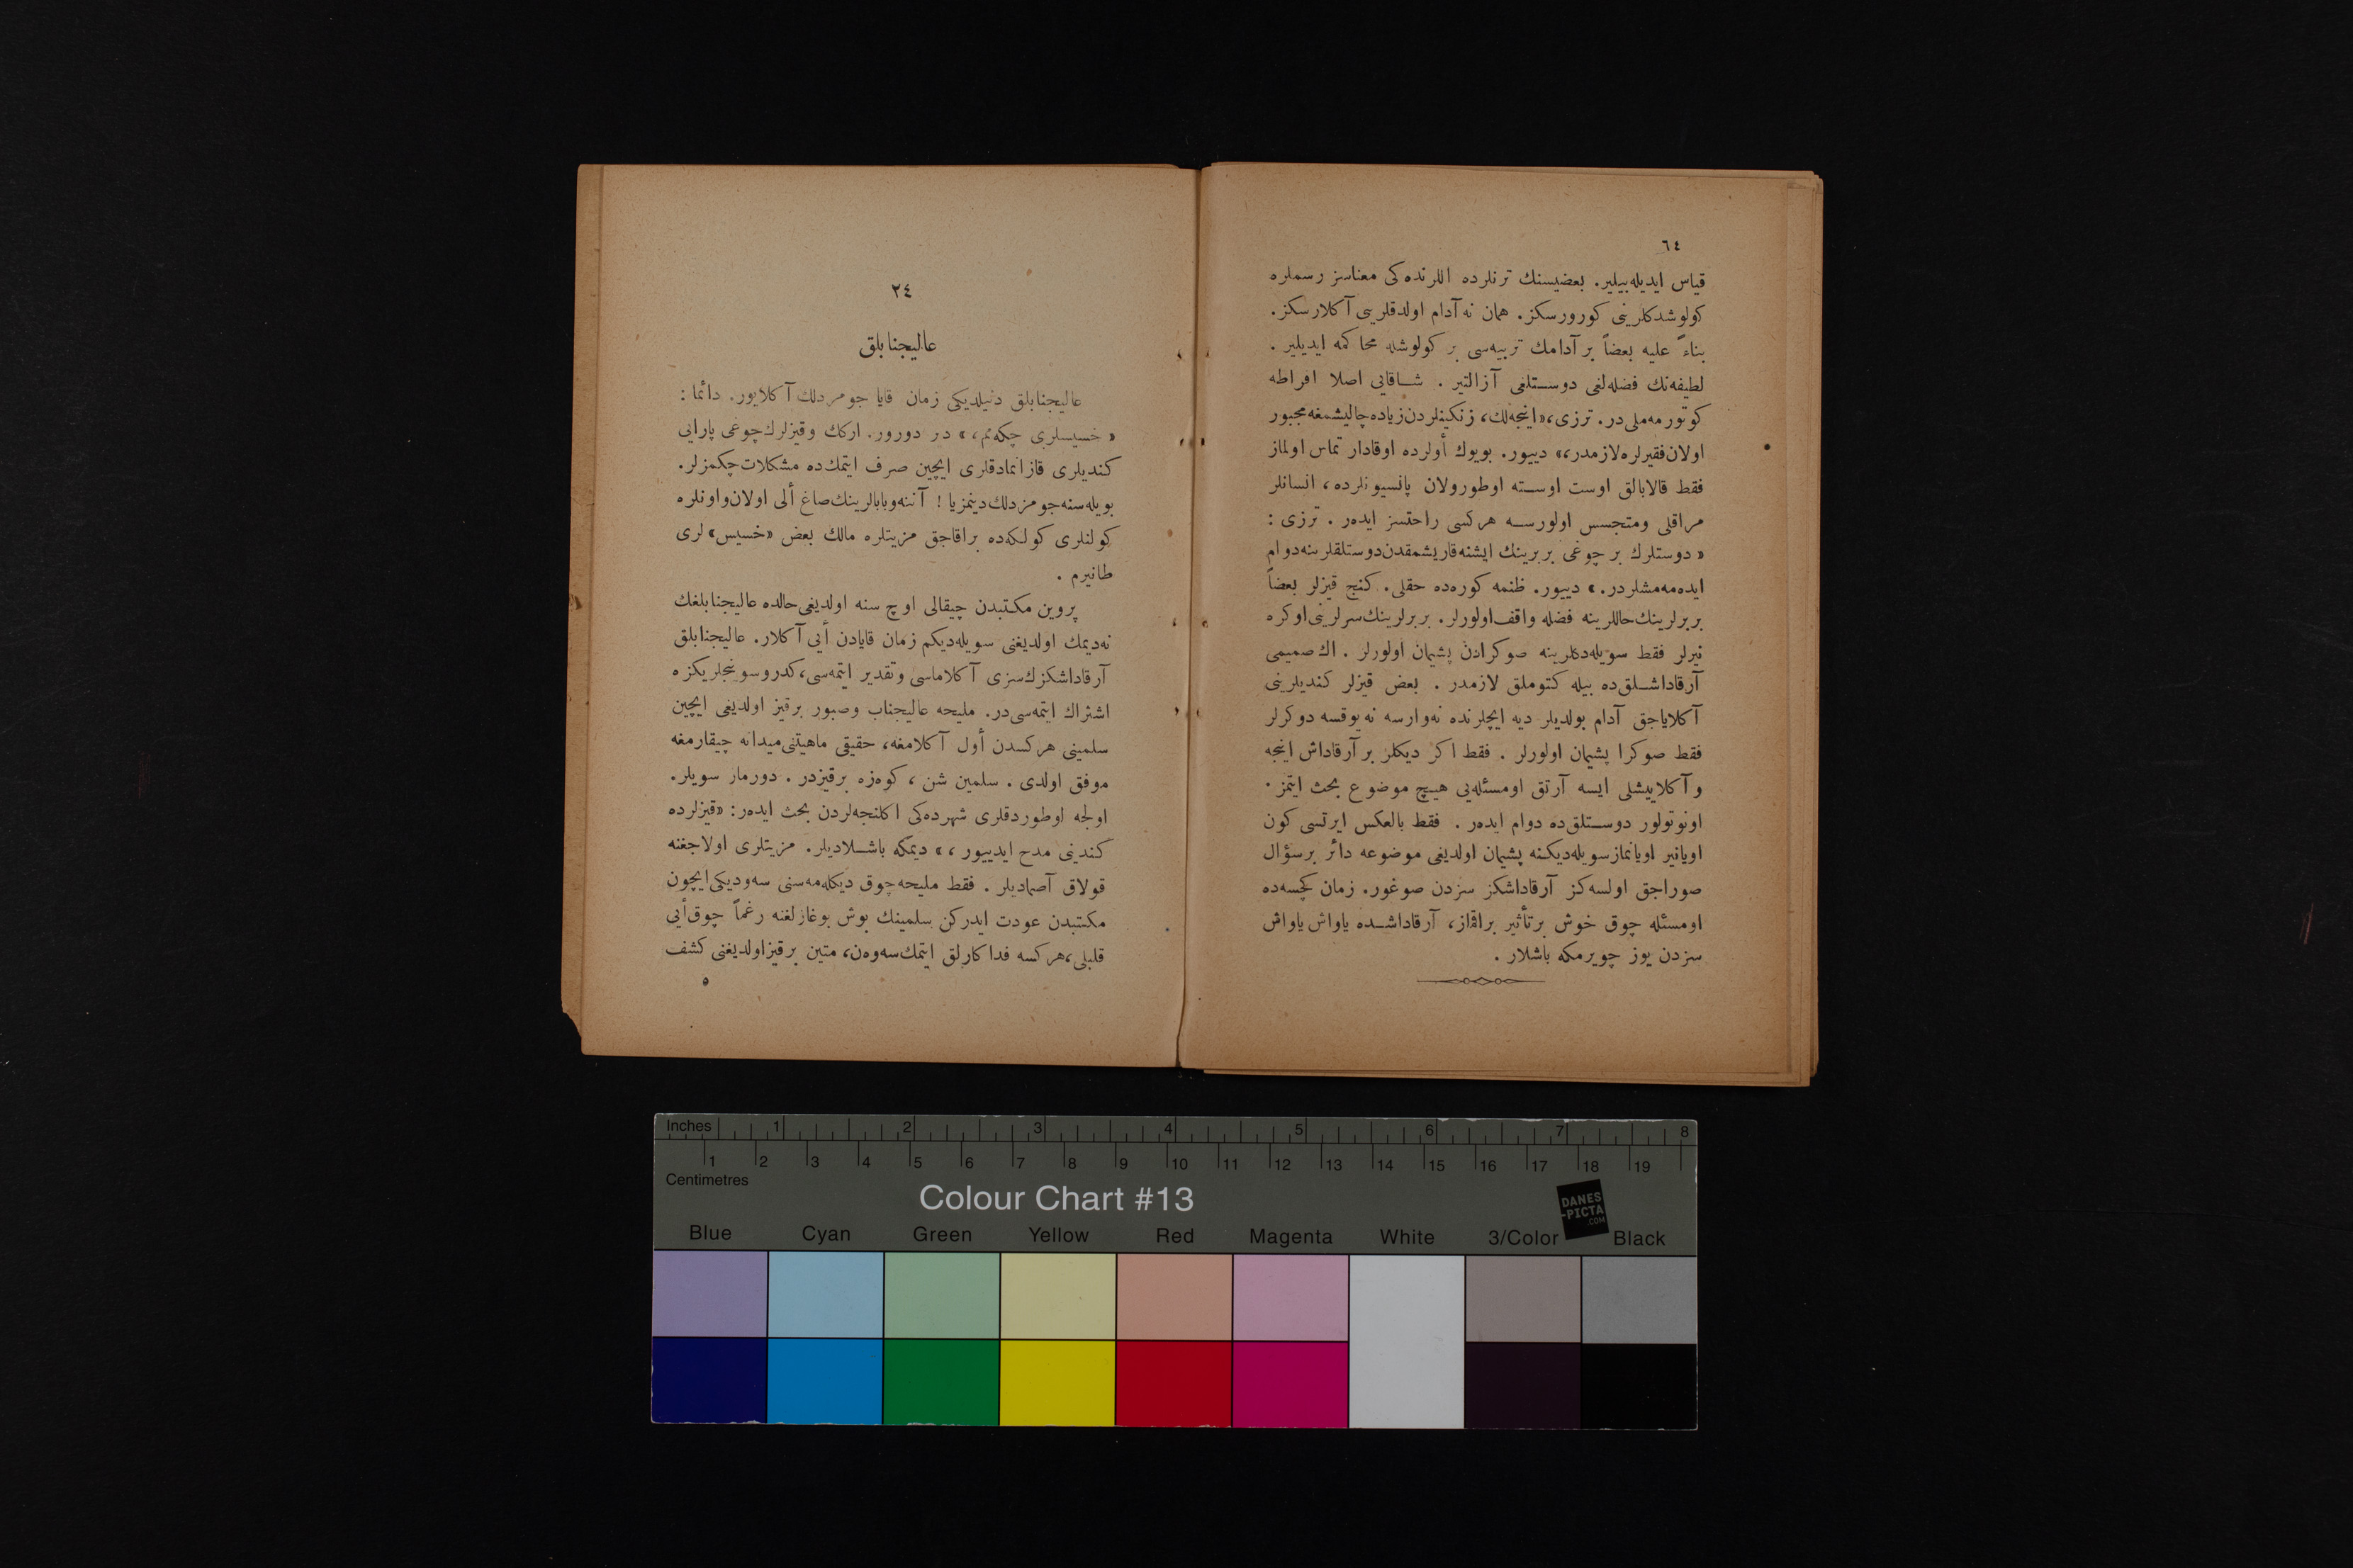 ٦٤
قياس ايديله‌بيلير. بعضيسنك ترنلرده اللرنده‌كى معناسز رسملره
كولوشدكلرينى كورورسكز. همان نه آدام اولدقلرينى آكلارسكز.
بناءً عليه بعضاً بر آدامك تربيه‌سى بر كولوشله محاكمه ايديلير .
لطيفه‌نك فضله‌لغى دوستلغى آزالتير . شاقايى اصلا افراطه
كوتورمه‌ملى‌در. ترزى، «اينجه‌لك، زنكينلردن زياده چاليشمغه مجبور
اولان فقيرلره لازمدر،» دييور. بويوك أولرده اوقادار تماس اولماز
فقط قالابالق اوست اوسته اوطورولان پانسيونلرده ، انسانلر
مراقلى ومتجسس اولورسه هركسى راحتسز ايده‌ر . ترزى :
« دوستلرك بر چوغى بربرينك ايشنه قاريشمقدن دوستلقلرينه دوام
ايده‌مه‌مشلردر. » دييور. ظنمه كوره‌ده حقلى. كنج قيزلر بعضاً
بربرلرينك حاللرينه فضله واقف اولورلر. بربرلرينك سرلرينى اوكره
نيرلر فقط سويله‌دكلرينه صوكرادن پشيمان اولورلر . اك صميمى
آرقاداشلق‌ده بيله كتوملق لازمدر . بعض قيزلر كنديلرينى
آكلاياجق آدام بولديلر ديه ايچلرنده نه‌وارسه نه يوقسه دوكرلر
فقط صوكرا پشيمان اولورلر . فقط اكر ديكلر بر آرقاداش اينجه
وآكلاييشلى ايسه آرتق اومسئله‌يى هيچ موضوع بحث ايتمز .
اونوتولور دوستلق‌ده دوام ايده‌ر . فقط بالعكس ايرتسى كون
اويانير اويانماز سويله‌ديكنه پشيمان اولديغى موضوعه دائر برسؤال
صوراجق اولسه‌كز آرقاداشكز سزدن صوغور. زمان كچسه‌ده
اومسئله چوق خوش برتأثير براقماز، آرقاداشده ياواش ياواش
سزدن يوز چويرمكه باشلار .
٢٤
عاليجنابلق
عاليجنابلق دنيلديكى زمان قايا جومردلك آكلايور. دائما :
« خسيسلرى چكه‌مم، » در دورور. اركك وقيزلرك چوغى پارايى
كنديلرى قازانمادقلرى ايچين صرف ايتمك‌ده مشكلات چكمزلر.
بويله‌سنه جومردلك دينمزيا ! آننه‌وبابالرينك صاغ ألى اولان واونلره
كولنلرى كولكه‌ده براقاجق مزيتلره مالك بعض «خسيس» لرى
طانيرم .
پروين مكتبدن چيقالى اوچ سنه اولديغى حالده عاليجنابلغك
نه‌ديمك اولديغنى سويله‌ديكم زمان قايادن أيى آكلار. عاليجنابلق
آرقاداشكزك سزى آكلاماسى وتقدير ايتمه‌سى، كدر وسوينجلريكزه
اشتراك ايتمه‌سى‌در. مليحه عاليجناب وصبور برقيز اولديغى ايچين
سلمينى هركسدن أول آكلامغه، حقيقى ماهيتنى ميدانه چيقارمغه
موفق اولدى . سلمين شن ، كوه‌زه برقيزدر . دورماز سويلر.
اولجه اوطوردقلرى شهرده‌كى اكلنجه‌لردن بحث ايده‌ر: «قيزلرده
كندينى مدح ايدييور ،» ديمكه باشلاديلر. مزيتلرى اولاجغنه
قولاق آصماديلر . فقط مليحه چوق ديكله‌مه‌سنى سه‌وديكى ايچون
مكتبدن عودت ايدركن سلمينك بوش بوغازلغنه رغماً چوق أيى
قلبلى، هركسه فداكارلق ايتمك سه‌وه‌ن، متين برقيز اولديغنى كشف
٥
Inches 1 2 3 4 5 6 7 8
1 2 3 4 5 6 7 8 9 10 11 12 13 14 15 16 17 18 19
Centimetres
Colour Chart #13
DANES
-PICTA
.COM
Blue Cyan Green Yellow Red Magenta White 3/Color Black